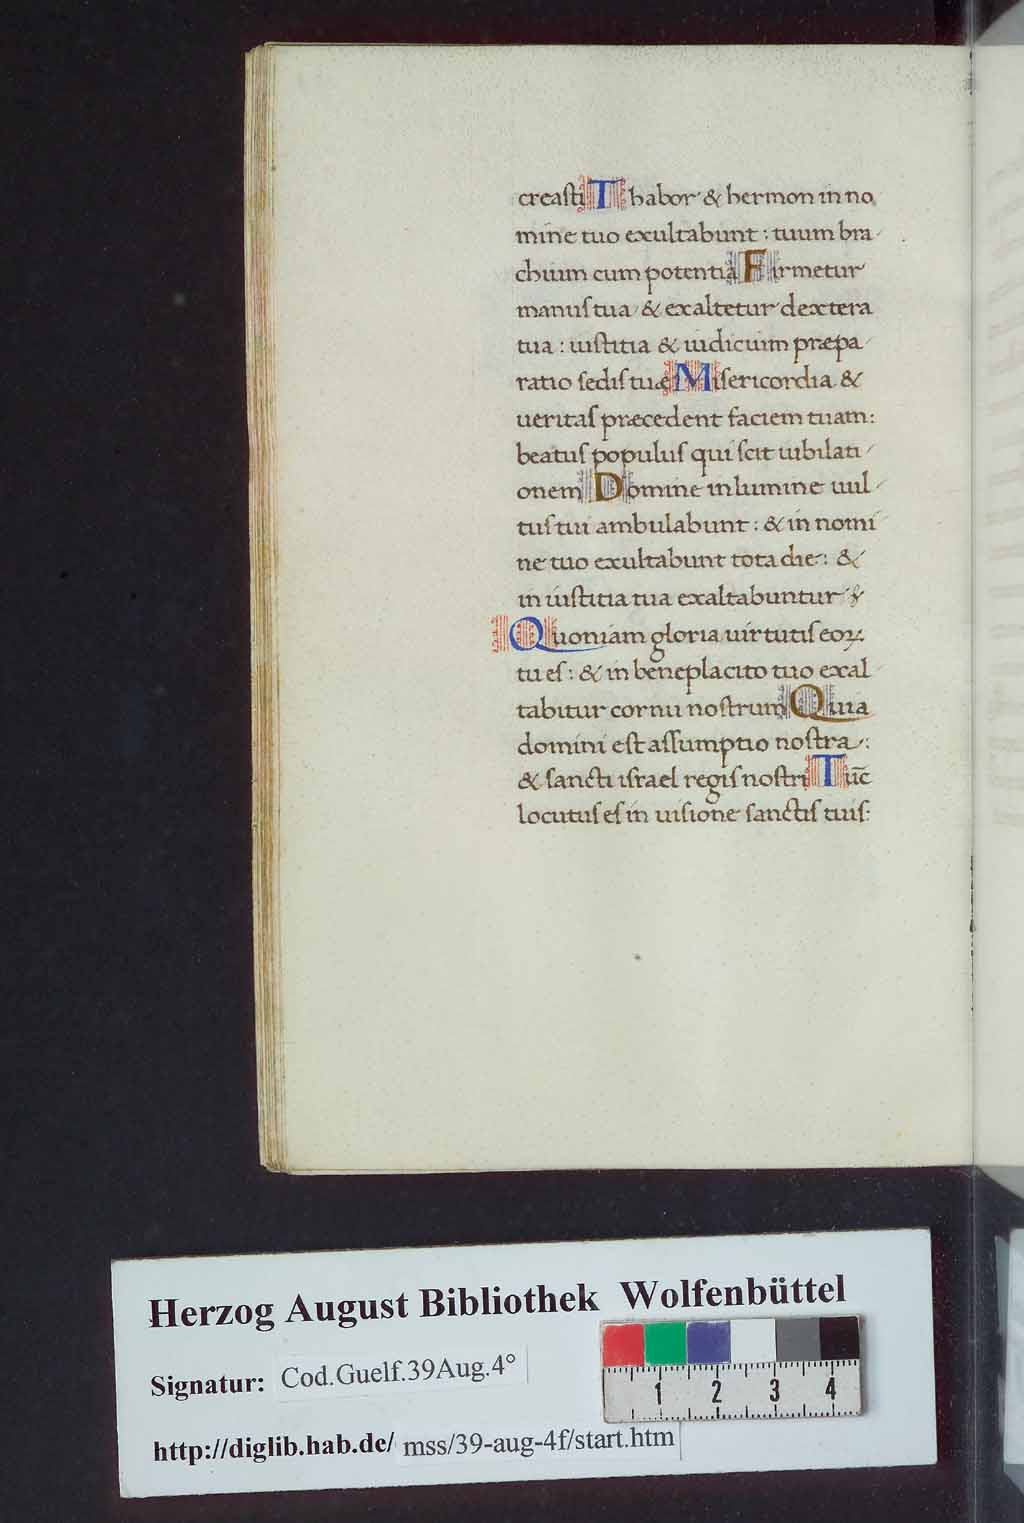 creasti Thabor & hermon in no
mine tuo exultabunt : tuum bra
chium cum potentia Firmetur
manus tua & exaltetur dextera
tua : iustitia & iudicium præpa
ratio sedis tuæ Misericordia &
ueritas præcedent faciem tuam :
beatus populus qui scit iubilati
onem Domine in lumine uul
tus tui ambulabunt : & in nomi
ne tuo exultabunt tota die : &
in iustitia tua exaltabuntur
Quoniam gloria uirtutis eoꝝ
tu es : & in beneplacito tuo exal
tabitur cornu nostrum Quia
domini est assumptio nostra :
& sancti israel regis nostri Tūc
locutus es in uisione sanctis tuis :
Herzog August Bibliothek Wolfenbüttel
Signatur: Cod.Guelf.39Aug.4°
http://diglib.hab.de/ mss/39-aug-4f/start.htm
1 2 3 4